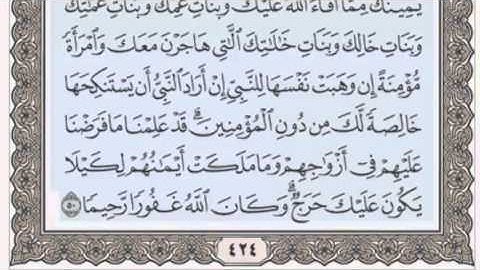 يَمِينُكَ مِمَّآ أَفَآءَ ٱللَّهُ عَلَيْكَ وَبَنَاتِ عَمِّكَ وَبَنَاتِ عَمَّٰتِكَ
وَبَنَاتِ خَالِكَ وَبَنَاتِ خَٰلَٰتِكَ ٱلَّٰتِي هَاجَرْنَ مَعَكَ وَٱمْرَأَةً
مُّؤْمِنَةً إِن وَهَبَتْ نَفْسَهَا لِلنَّبِيِّ إِنْ أَرَادَ ٱلنَّبِيُّ أَن يَسْتَنكِحَهَا
خَالِصَةً لَّكَ مِن دُونِ ٱلْمُؤْمِنِينَ ۗ قَدْ عَلِمْنَا مَا فَرَضْنَا
عَلَيْهِمْ فِيٓ أَزْوَٰجِهِمْ وَمَا مَلَكَتْ أَيْمَٰنُهُمْ لِكَيْلَا
يَكُونَ عَلَيْكَ حَرَجٌ ۗ وَكَانَ ٱللَّهُ غَفُورًا رَّحِيمًا ٥٠
٤٢٤